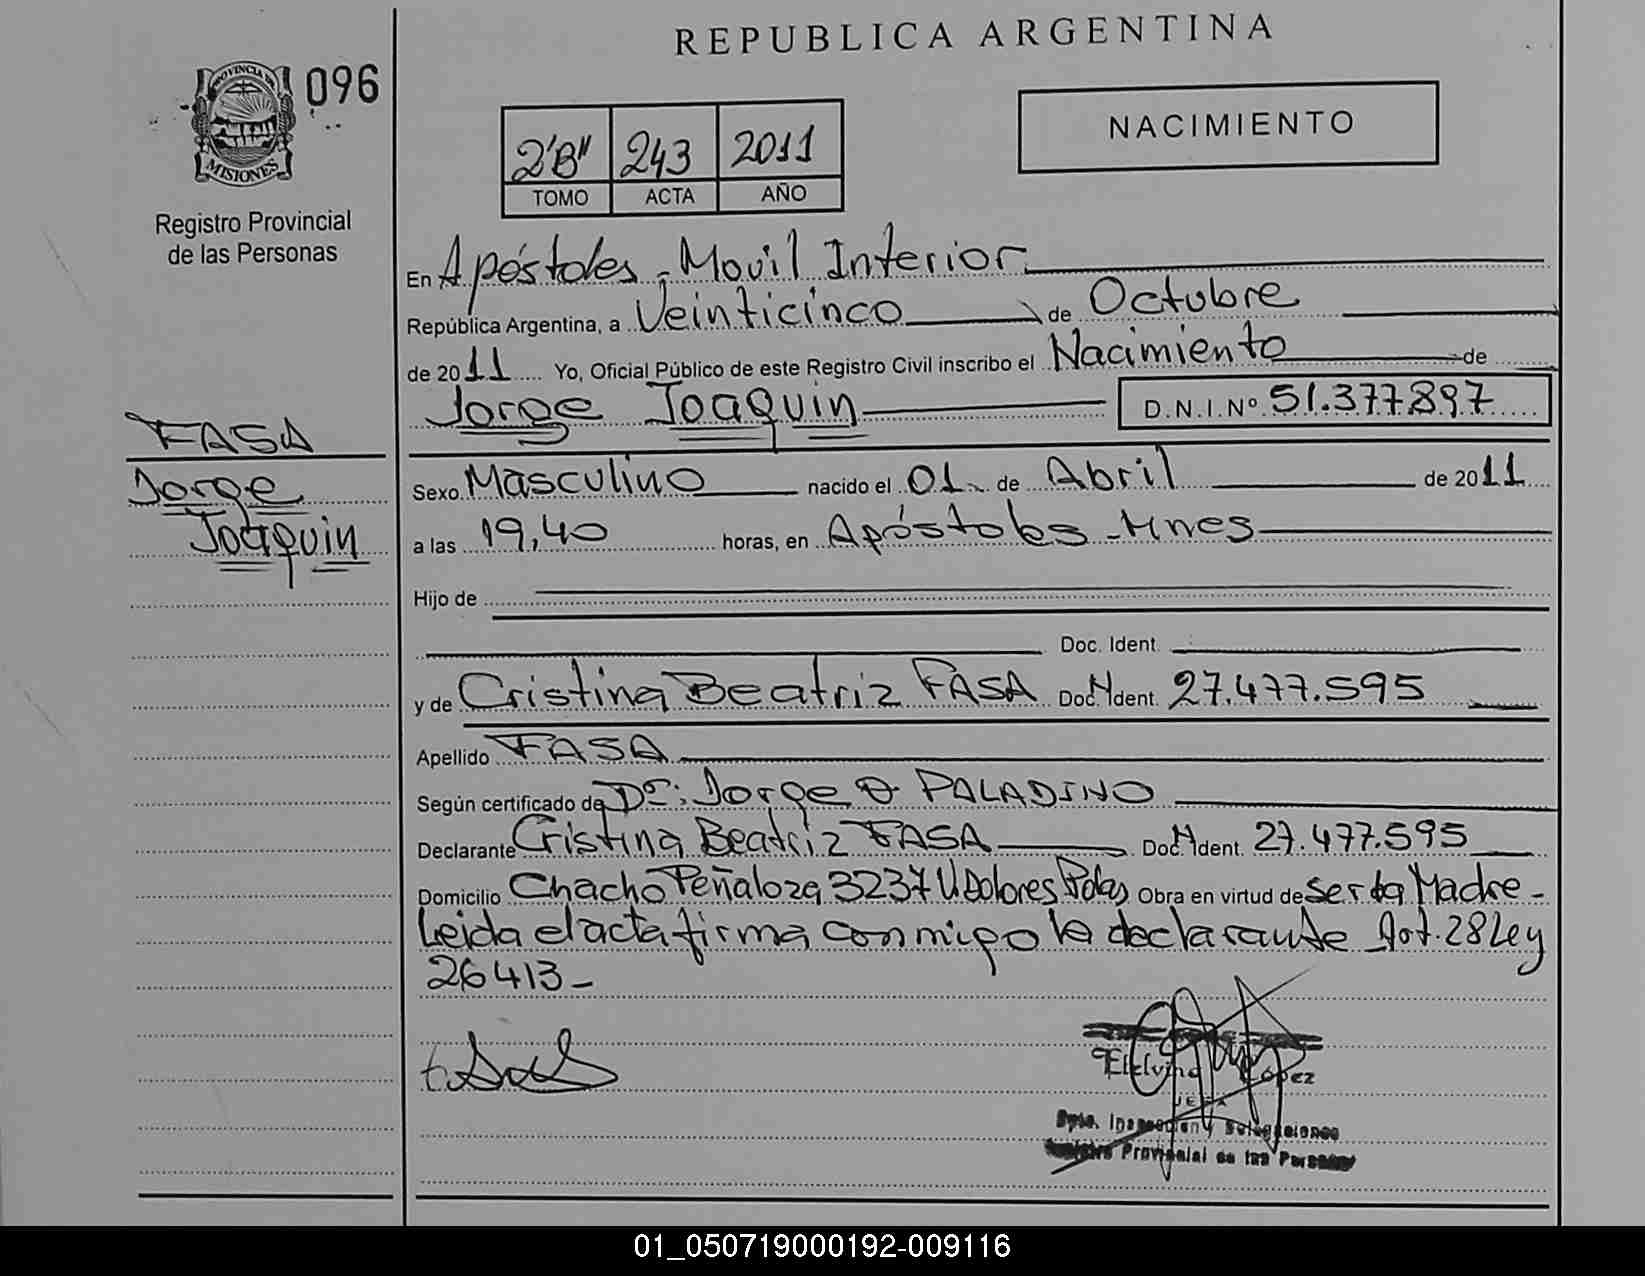 REPUBLICA ARGENTINA
PROVINCIA DE
MISIONES
096
Registro Provincial
de las Personas
2"B" 243 2011
TOMO ACTA AÑO
NACIMIENTO
En Apóstoles - Movil Interior
República Argentina, a Veinticinco de Octubre
de 2011 Yo, Oficial Público de este Registro Civil inscribo el Nacimiento de
Jorge Joaquin D.N.I.Nº 51.377.897
FASA
Jorge
Joaquin
Sexo Masculino nacido el 01 de Abril de 2011
a las 19,40 horas, en Apóstoles - Mnes
Hijo de
Doc. Ident.
y de Cristina Beatriz FASA Doc. Ident. 27.477.595
Apellido FASA
Según certificado de Dr: Jorge O PALADINO
Declarante Cristina Beatriz FASA Doc. Ident. 27.477.595
Domicilio Chacho Peñaloza 3237 V. Dolores Pdas Obra en virtud de ser la Madre -
Leida el acta firma conmigo la declarante Art. 28 Ley
26413 -
López
JEFA
Dpto. Inspección y Delegaciones
Registro Provincial de las Personas
01_050719000192-009116